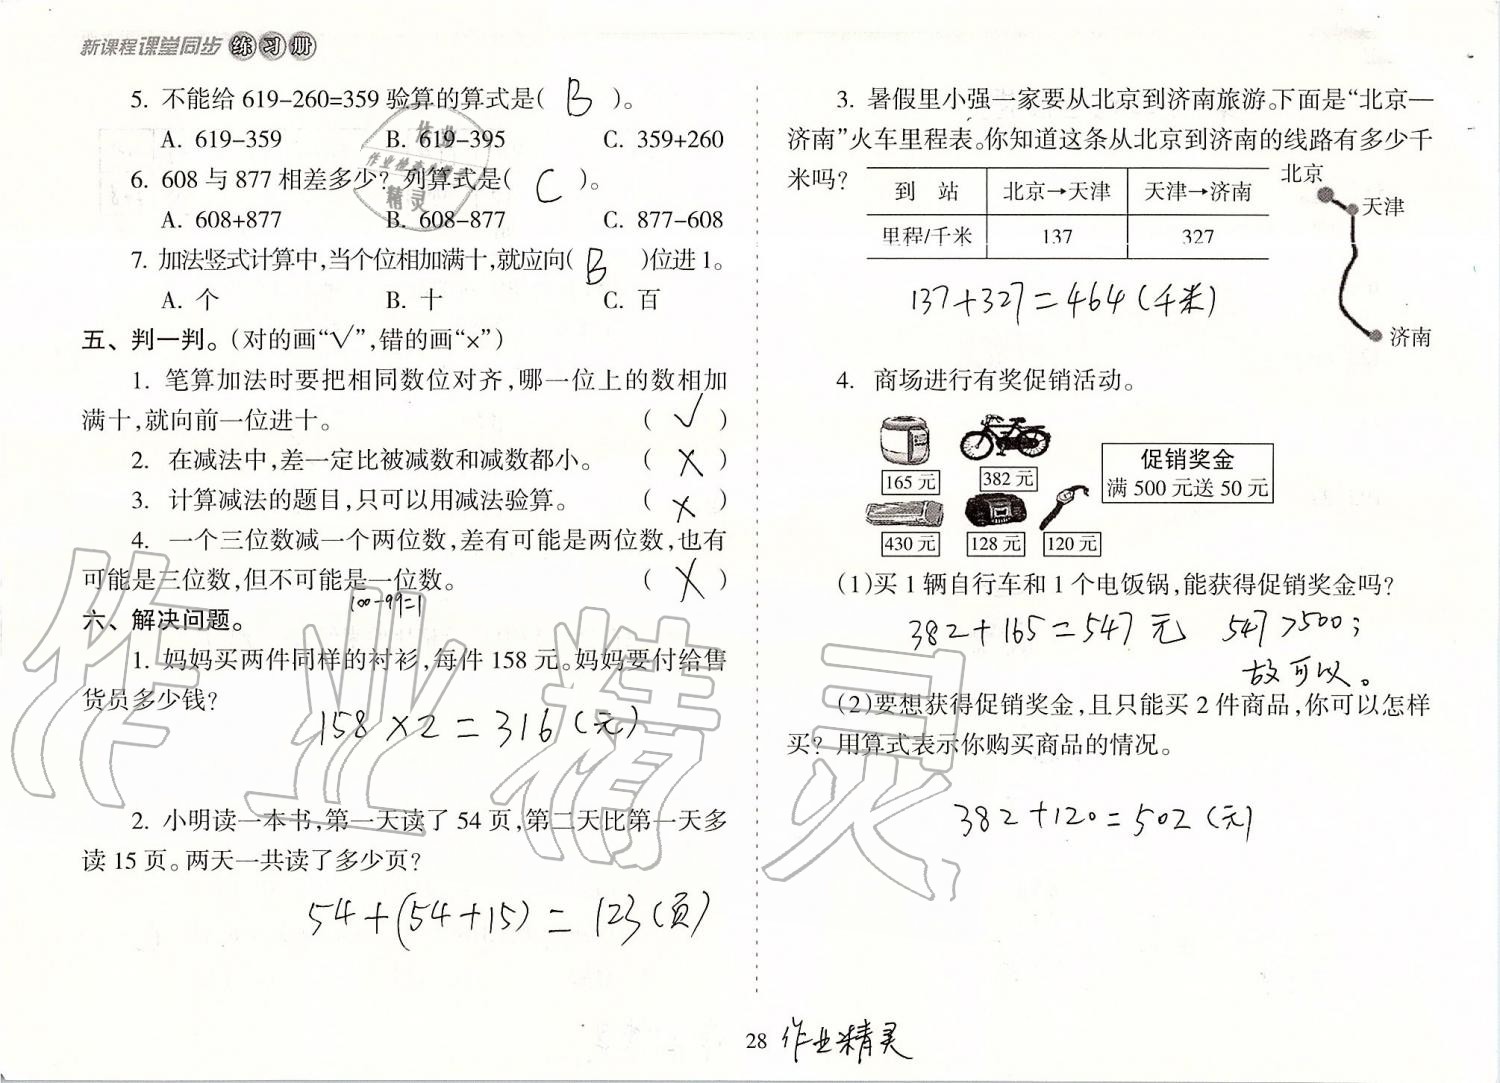 新课程课堂同步练习册
5. 不能给 619-260=359 验算的算式是( B )。
A. 619-359 B. 619-395 C. 359+260
6. 608 与 877 相差多少？列算式是( C )。
A. 608+877 B. 608-877 C. 877-608
7. 加法竖式计算中，当个位相加满十，就应向( B )位进 1。
A. 个 B. 十 C. 百
五、判一判。（对的画“√”，错的画“×”）
1. 笔算加法时要把相同数位对齐，哪一位上的数相加
满十，就向前一位进十。 ( √ )
2. 在减法中，差一定比被减数和减数都小。 ( × )
3. 计算减法的题目，只可以用减法验算。 ( × )
4. 一个三位数减一个两位数，差有可能是两位数，也有
可能是三位数，但不可能是一位数。 ( × )
100-99=1
六、解决问题。
1. 妈妈买两件同样的衬衫，每件 158 元。妈妈要付给售
货员多少钱？
158×2=316（元）
2. 小明读一本书，第一天读了 54 页，第二天比第一天多
读 15 页。两天一共读了多少页？
54+(54+15)=123（页）
3. 暑假里小强一家要从北京到济南旅游。下面是“北京—
济南”火车里程表。你知道这条从北京到济南的线路有多少千
米吗？
到 站 北京→天津 天津→济南
里程/千米 137 327
北京
天津
济南
137+327=464（千米）
4. 商场进行有奖促销活动。
165 元 382 元
430 元 128 元 120 元
促销奖金
满 500 元送 50 元
(1)买 1 辆自行车和 1 个电饭锅，能获得促销奖金吗？
382+165=547元 547>500；
故可以。
(2)要想获得促销奖金，且只能买 2 件商品，你可以怎样
买？用算式表示你购买商品的情况。
382+120=502（元）
28 作业精灵
作业精灵
作业
作业检查小精灵
精灵